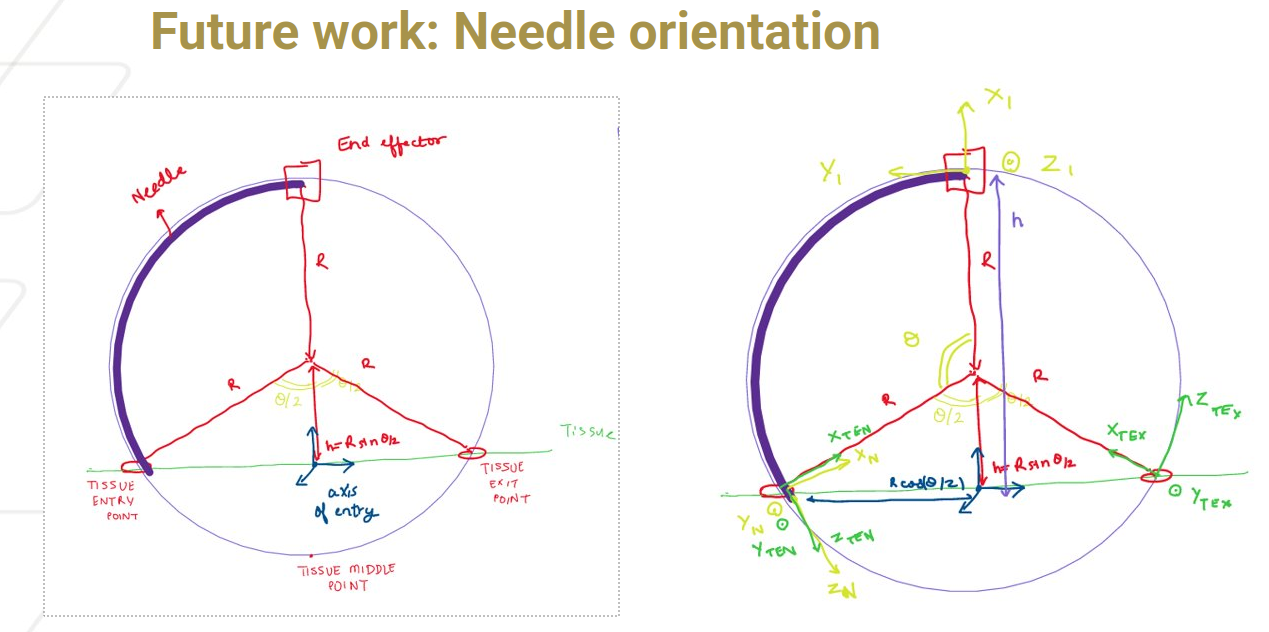 Future work: Needle orientation
End effector
Needle
R
R
R
θ/2
θ/2
h=R sin θ/2
Tissue
TISSUE
ENTRY
POINT
TISSUE
EXIT
POINT
axis
of entry
TISSUE MIDDLE
POINT
X1
Y1
Z1
h
R
θ
R
R
θ/2
θ/2
XTEN
XN
h=R sin θ/2
R cos(θ/2)
XTEX
ZTEX
YTEX
YN
YTEN
ZTEN
ZN